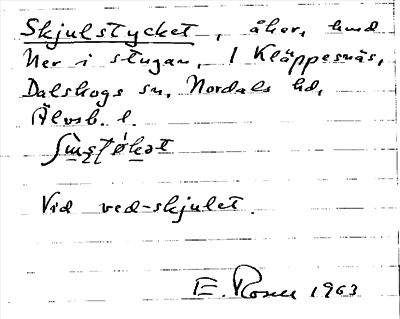 Skjulstycket, åker, hmd
Ner i stugan, 1 Kläppesnäs,
Dalskogs sn, Nordals hd,
Älvsb. l.
Vid ved-skjulet.
E. Rosen 1963